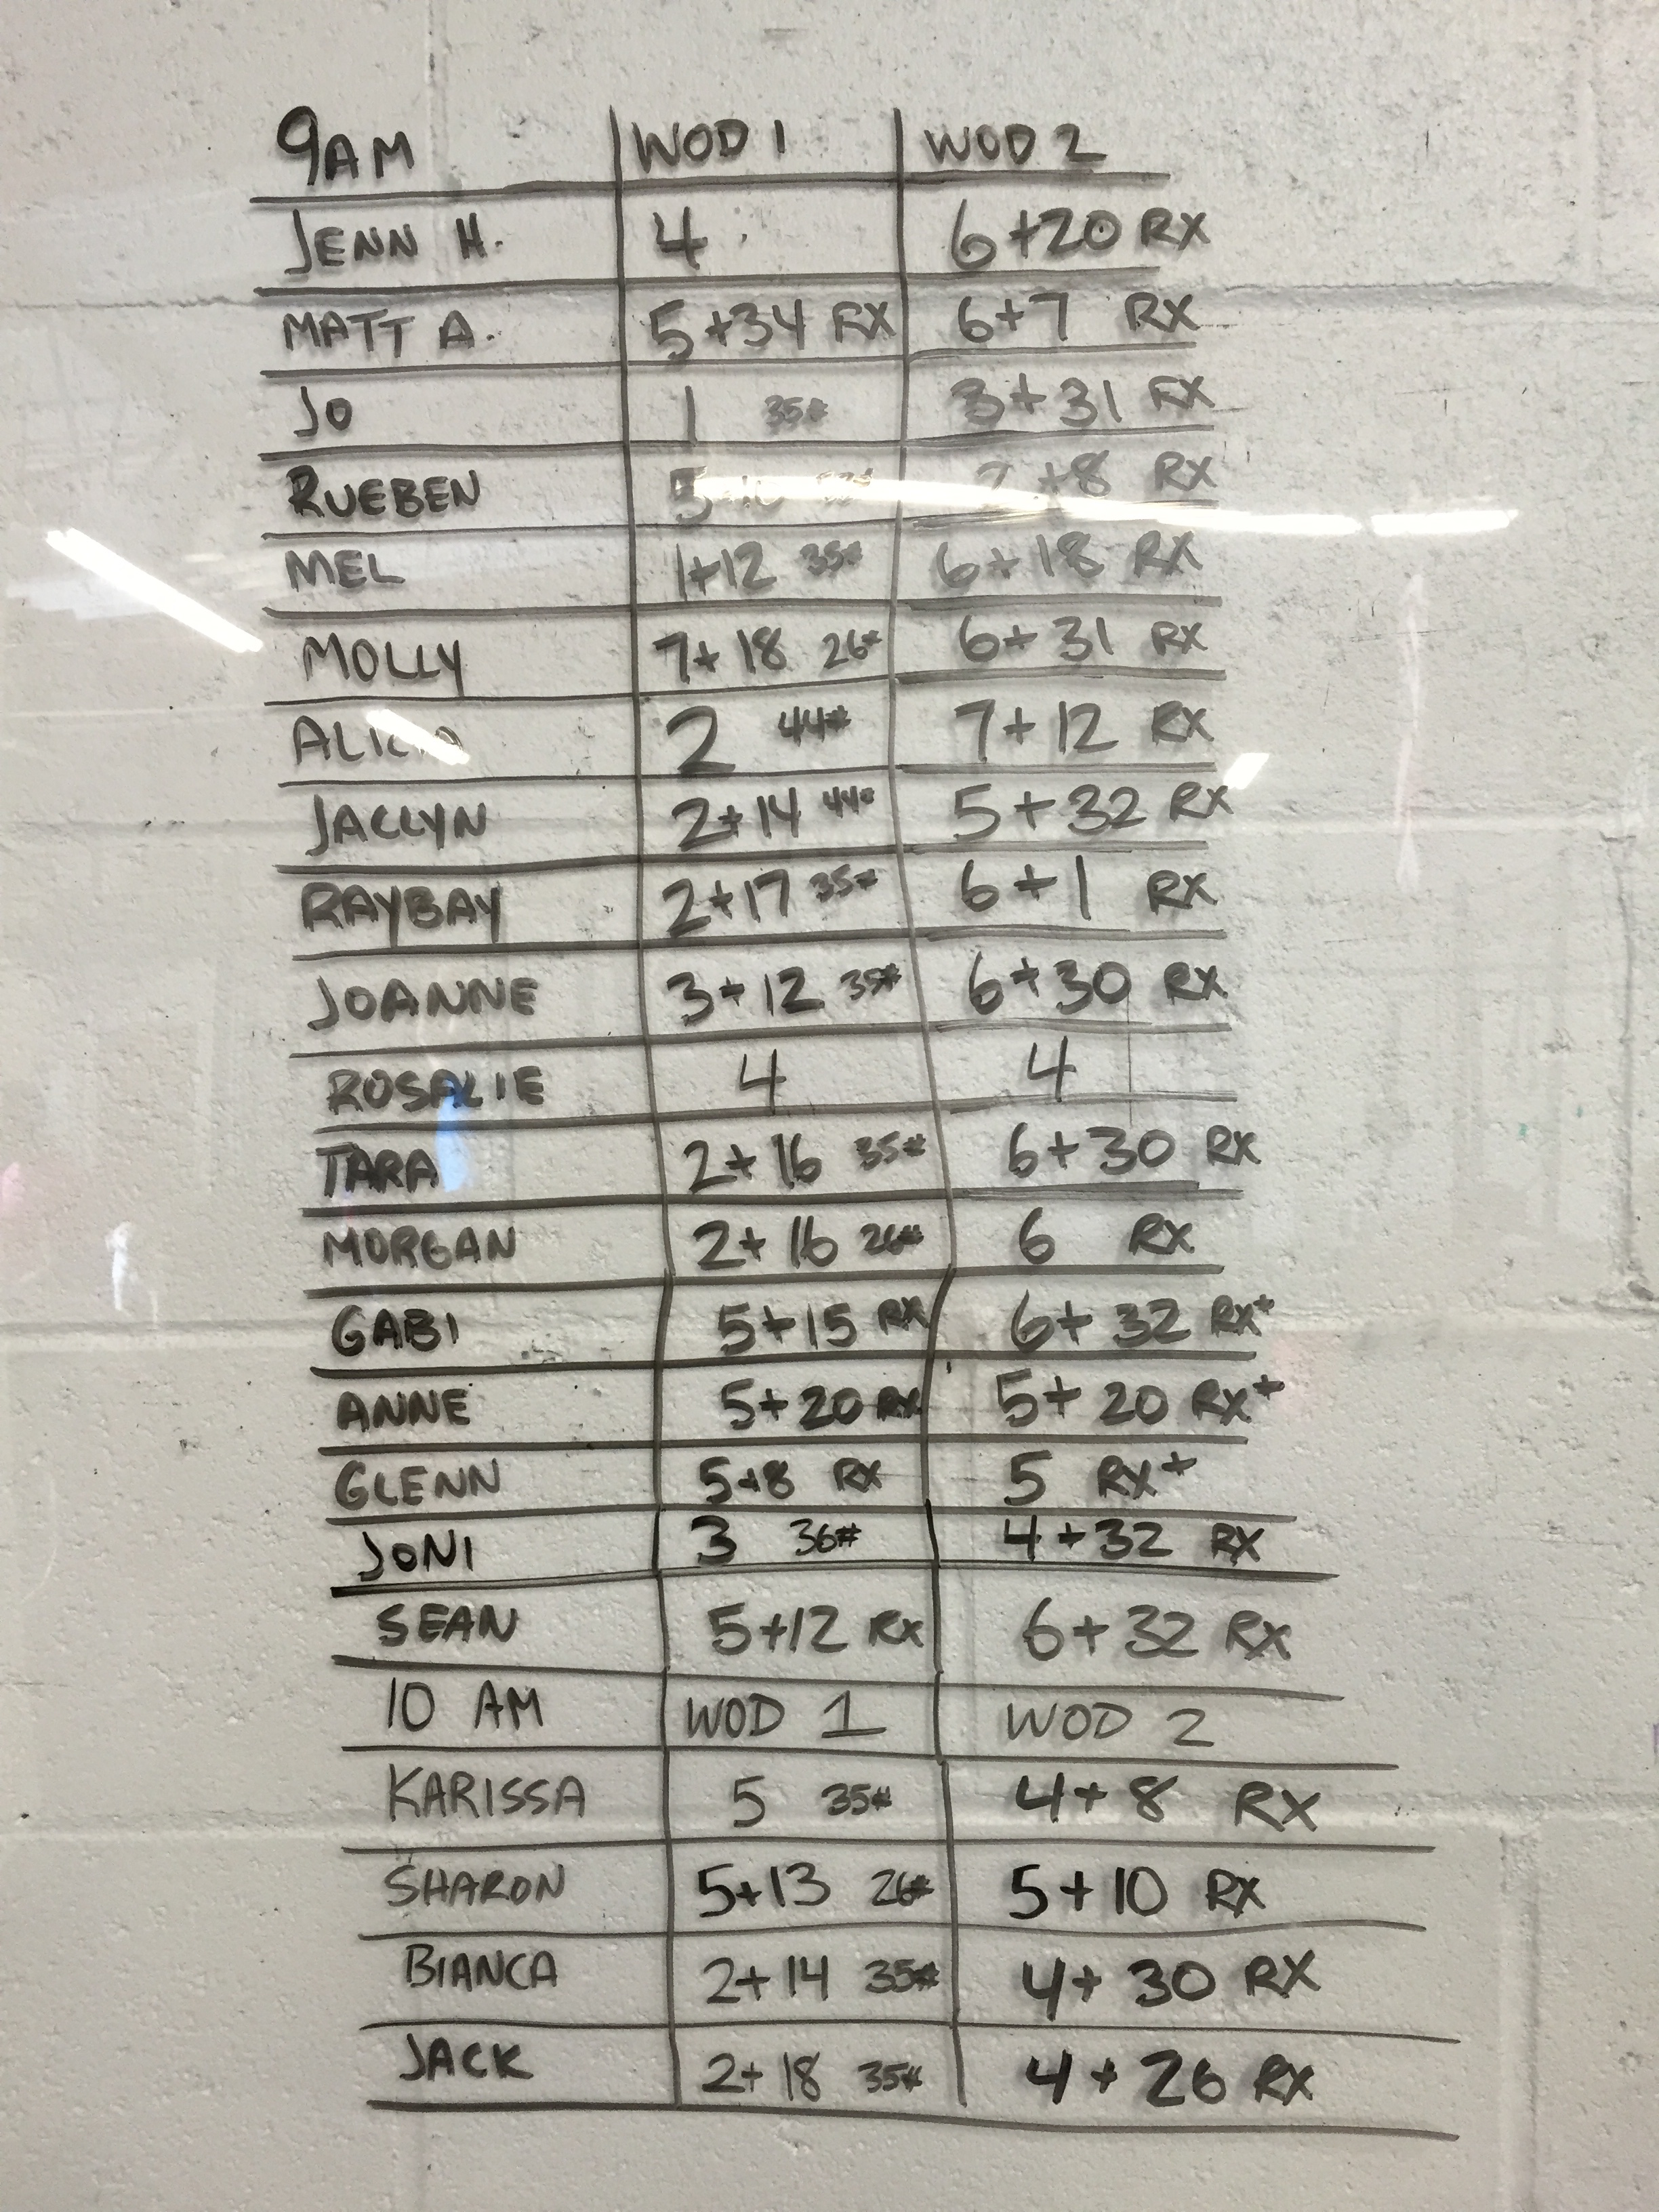 9AM WOD 1 WOD 2
JENN H. 4 6+20 RX
MATT A. 5+34 RX 6+7 RX
JO 1 35# 3+31 RX
RUEBEN 5 +8 RX
MEL 1+12 35# 6+18 RX
MOLLY 7+18 26# 6+31 RX
ALICIA 2 44# 7+12 RX
JACLYN 2+14 44# 5+32 RX
RAYBAY 2+17 35# 6+1 RX
JOANNE 3+12 35# 6+30 RX
ROSALIE 4 4
TARA 2+16 35# 6+30 RX
MORGAN 2+16 26# 6 RX
GABI 5+15 RX 6+32 RX+
ANNE 5+20 RX 5+20 RX+
GLENN 5+8 RX 5 RX+
JONI 3 36# 4+32 RX
SEAN 5+12 RX 6+32 RX
10 AM WOD 1 WOD 2
KARISSA 5 35# 4+8 RX
SHARON 5+13 26# 5+10 RX
BIANCA 2+14 35# 4+30 RX
JACK 2+18 35# 4+26 RX